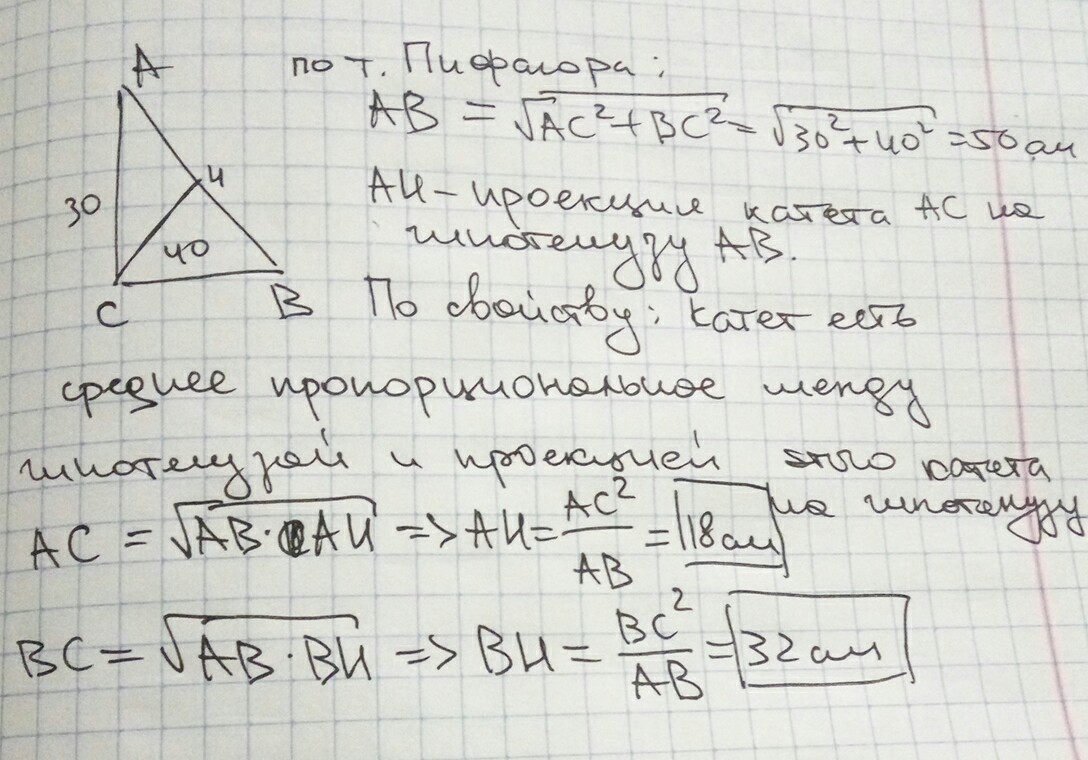 A
по т. Пифагора:
AB = √AC²+BC² = √30²+40² = 50 см
H
30
AH – проекция катета AC на
гипотенузу AB.
40
C
B
По свойству: катет есть
среднее пропорциональное между
гипотенузой и проекцией этого катета
на гипотенузу
AC = √AB·AH => AH = AC²/AB = 18 см
BC = √AB·BH => BH = BC²/AB = 32 см